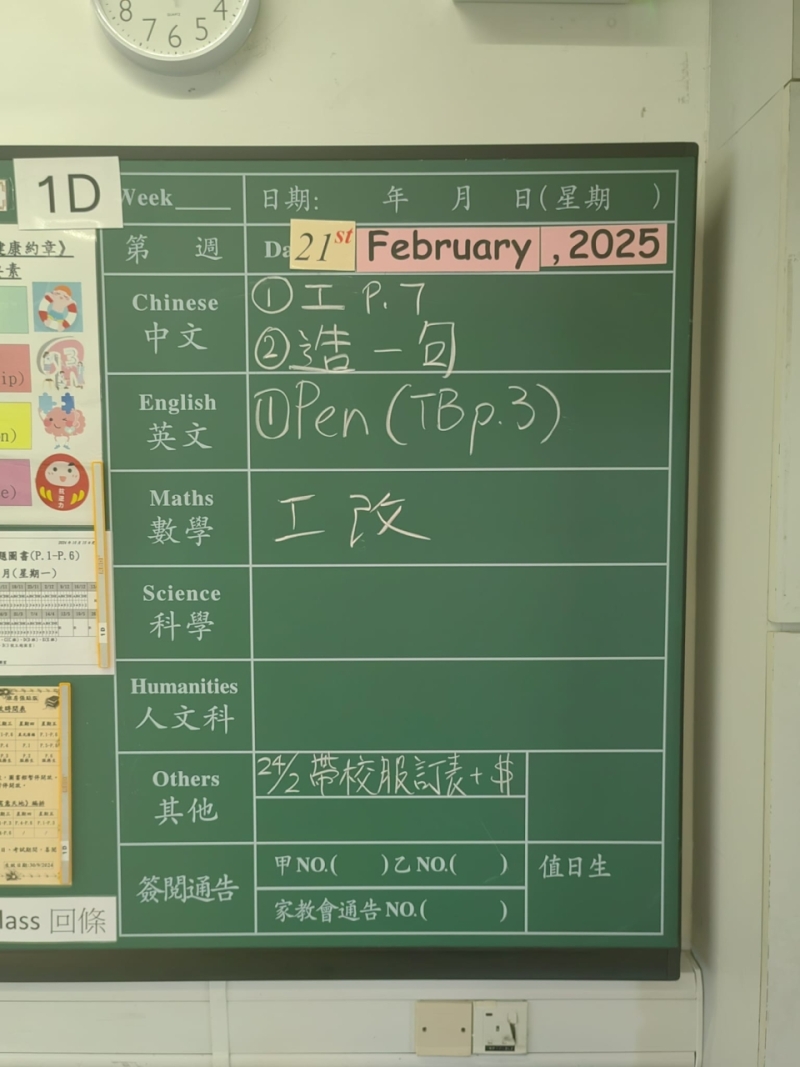 8 7 6 5 4
QUARTZ
1D
Week
日期: 年 月 日(星期 )
第 週
21st February , 2025
健康約章》
Chinese
中文
① 工 P. 7
② 造一句
ip)
English
英文
① Pen (TB p.3)
n)
e)
Maths
數學
工改
題圖書(P.1-P.6)
月(星期一)
Science
科學
Humanities
人文科
Others
其他
24/2 帶校服訂表+$
簽閱通告
甲NO.( )乙NO.( )
值日生
家教會通告NO.( )
lass 回條